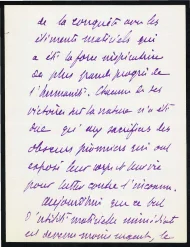 de la conquête avec les
éléments matériels qui
a été la force inspiratrice
des plus grands progrès de
l'humanité. Chacune de ses
victoires sur la nature n'a été
due qu'aux sacrifices des
obscurs pionniers qui ont
exposé leur corps et leur vie
pour lutter contre l'inconnu.
Aujourd'hui que ce but
d'utilité matérielle immédiate
est devenu moins urgent, le